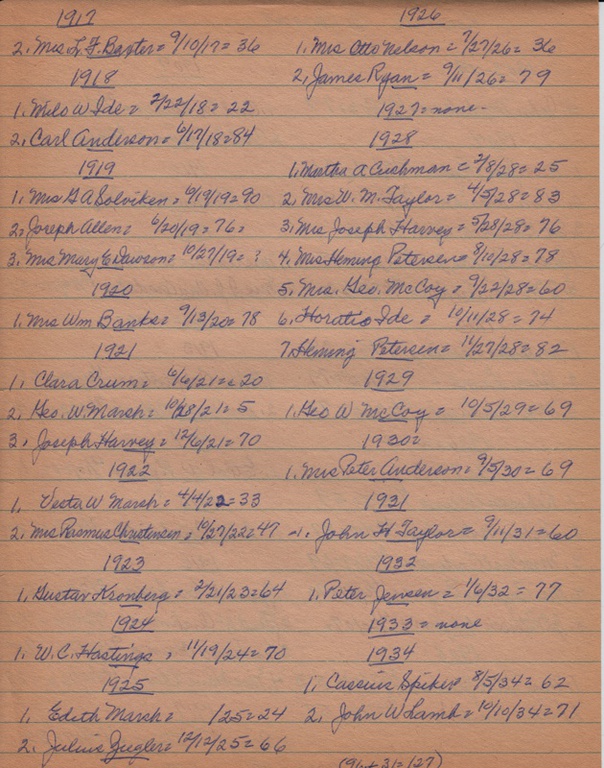 1917
2. Mrs L. F. Baxter = 9/10/17 = 36
1918
1. Milo W Ide = 2/22/18 = 22
2. Carl Anderson = 6/17/18 = 84
1919
1. Mrs G A Solviken = 6/19/19 = 90
2. Joseph Allen = 6/20/19 = 76 =
3. Mrs Mary E. Lawson = 10/27/19 = ?
1920
1. Mrs Wm Banks = 9/13/20 = 78
1921
1. Clara Crum = 6/6/21 = 20
2. Geo. W Marsh = 10/28/21 = 5
3. Joseph Harvey = 12/6/21 = 70
1922
1. Vesta W Marsh = 4/4/22 = 33
2. Mrs Rasmus Christensen = 10/27/22 = 47
1923
1. Gustav Kronberg = 2/21/23 = 64
1924
1. W. C. Hastings = 11/19/24 = 70
1925
1. Edith Marsh = /25 = 24
2. Julius Zugler = 12/12/25 = 66
1926
1. Mrs Otto Nelson = 7/27/26 = 36
2. James Ryan = 9/11/26 = 79
1927 = none -
1928
1. Martha A Cushman = 2/8/28 = 25
2. Mrs W. M. Taylor = 4/5/28 = 83
3. Mrs Joseph Harvey = 5/28/28 = 76
4. Mrs Heming Petersen = 8/10/28 = 78
5. Mrs. Geo. McCoy = 9/22/28 = 60
6. Horatio Ide = 10/11/28 = 74
7. Heming Petersen = 11/27/28 = 82
1929
1. Geo W McCoy = 10/5/29 = 69
1930 =
1. Mrs Peter Anderson = 9/5/30 = 69
1931
1. John H Taylor = 9/11/31 = 60
1932
1. Peter Jensen = 1/6/32 = 77
1933 = none
1934
1. Cassius Spiker = 8/5/34 = 62
2. John W Lamb = 10/10/34 = 71
(96 + 31 = 127)